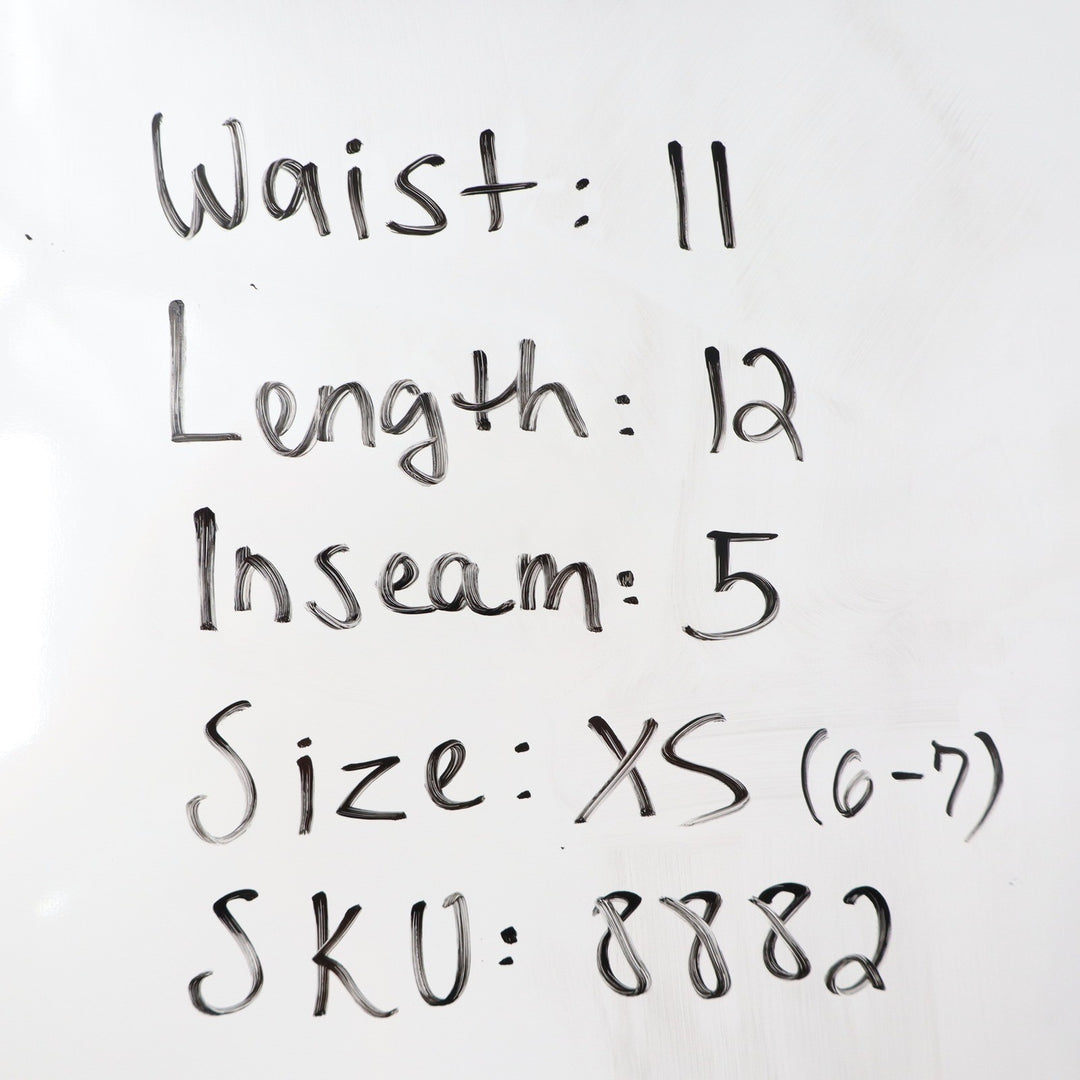 Waist: 11
Length: 12
Inseam: 5
Size: XS (6-7)
SKU: 8882